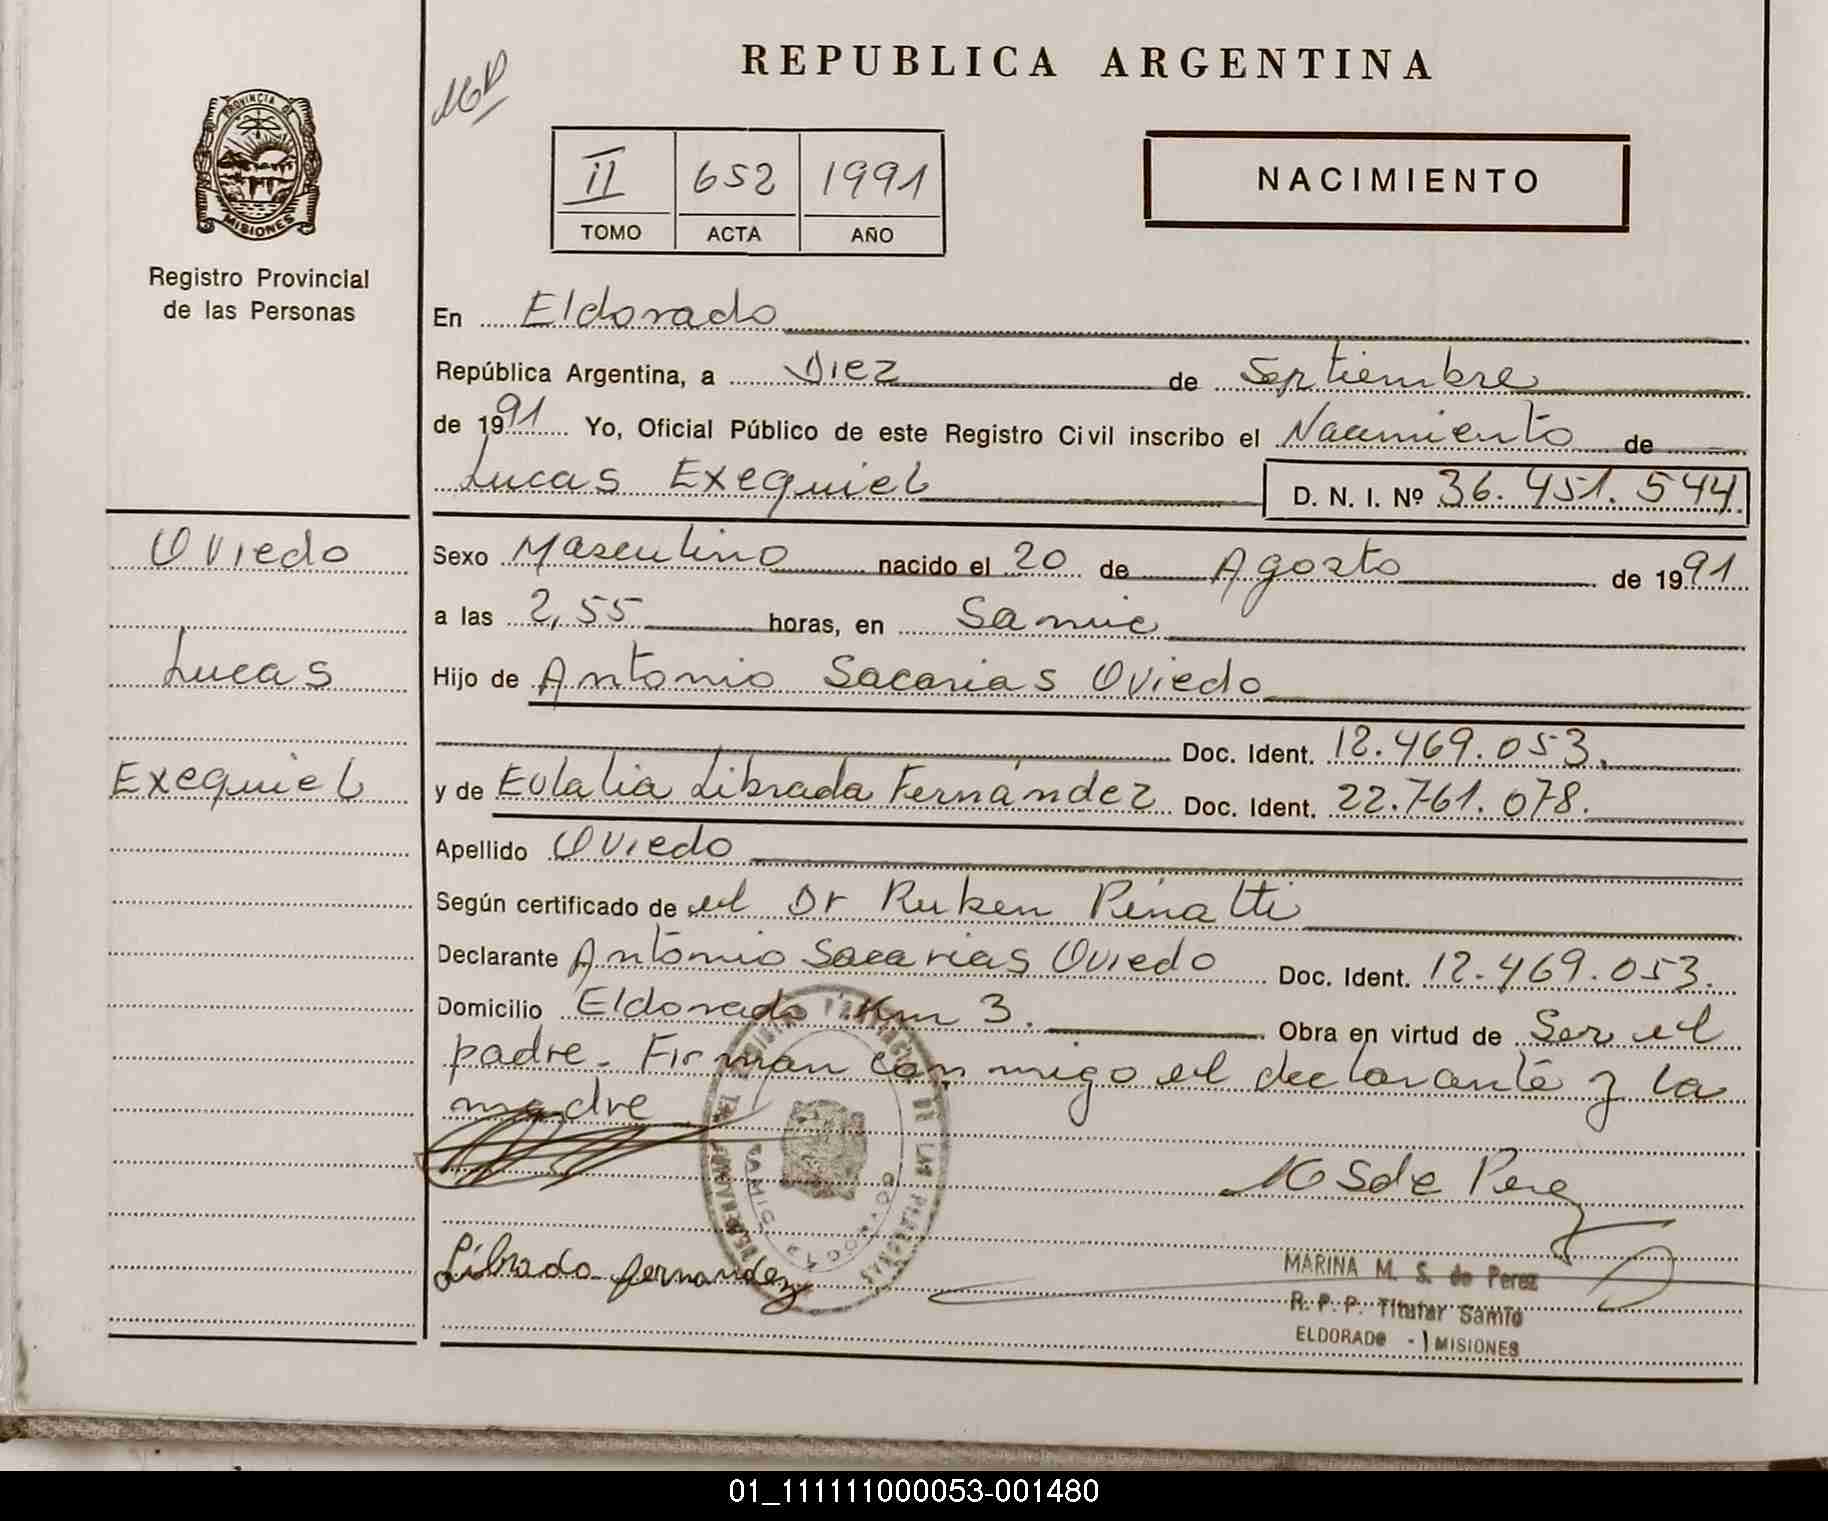 REPUBLICA ARGENTINA
PROVINCIA DE
MISIONES
Registro Provincial
de las Personas
II 652 1991
TOMO ACTA AÑO
NACIMIENTO
En Eldorado
República Argentina, a Diez de Septiembre
de 1991 Yo, Oficial Público de este Registro Civil inscribo el Nacimiento de
Lucas Exequiel D. N. I. Nº 36.451.544
Oviedo
Lucas
Exequiel
Sexo Masculino nacido el 20 de Agosto de 1991
a las 2,55 horas, en Samic
Hijo de Antonio Sacarias Oviedo
Doc. Ident. 12.469.053.
y de Eulalia Librada Fernández Doc. Ident. 22.761.078.
Apellido Oviedo
Según certificado de el Dr Ruben Pinatti
Declarante Antonio Sacarias Oviedo Doc. Ident. 12.469.053.
Domicilio Eldorado Km 3. Obra en virtud de Ser el
padre. Firman conmigo el declarante y la
madre
MSde Perez
Librada fernandez
MARINA M. S. de Perez
R. P. P. Titular Samic
ELDORADO - MISIONES
01_111111000053-001480